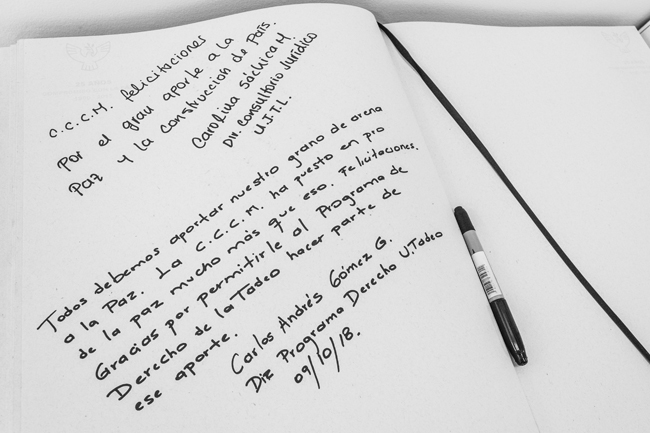 C.C.C.M. felicitaciones
por el gran aporte a la
Paz y la construcción de País.
Carolina sáchica M.
Dir. consultorio Jurídico
U.J.T.L.
Todos debemos aportar nuestro grano de arena
a la Paz. La C.C.C.M. ha puesto en pro
de la paz mucho más que eso. Felicitaciones.
Gracias por permitirle al Programa de
Derecho de la Tadeo hacer parte de
ese aporte.
Carlos Andrés Gómez G.
Dir Programa Derecho U.Tadeo
09/10/18.